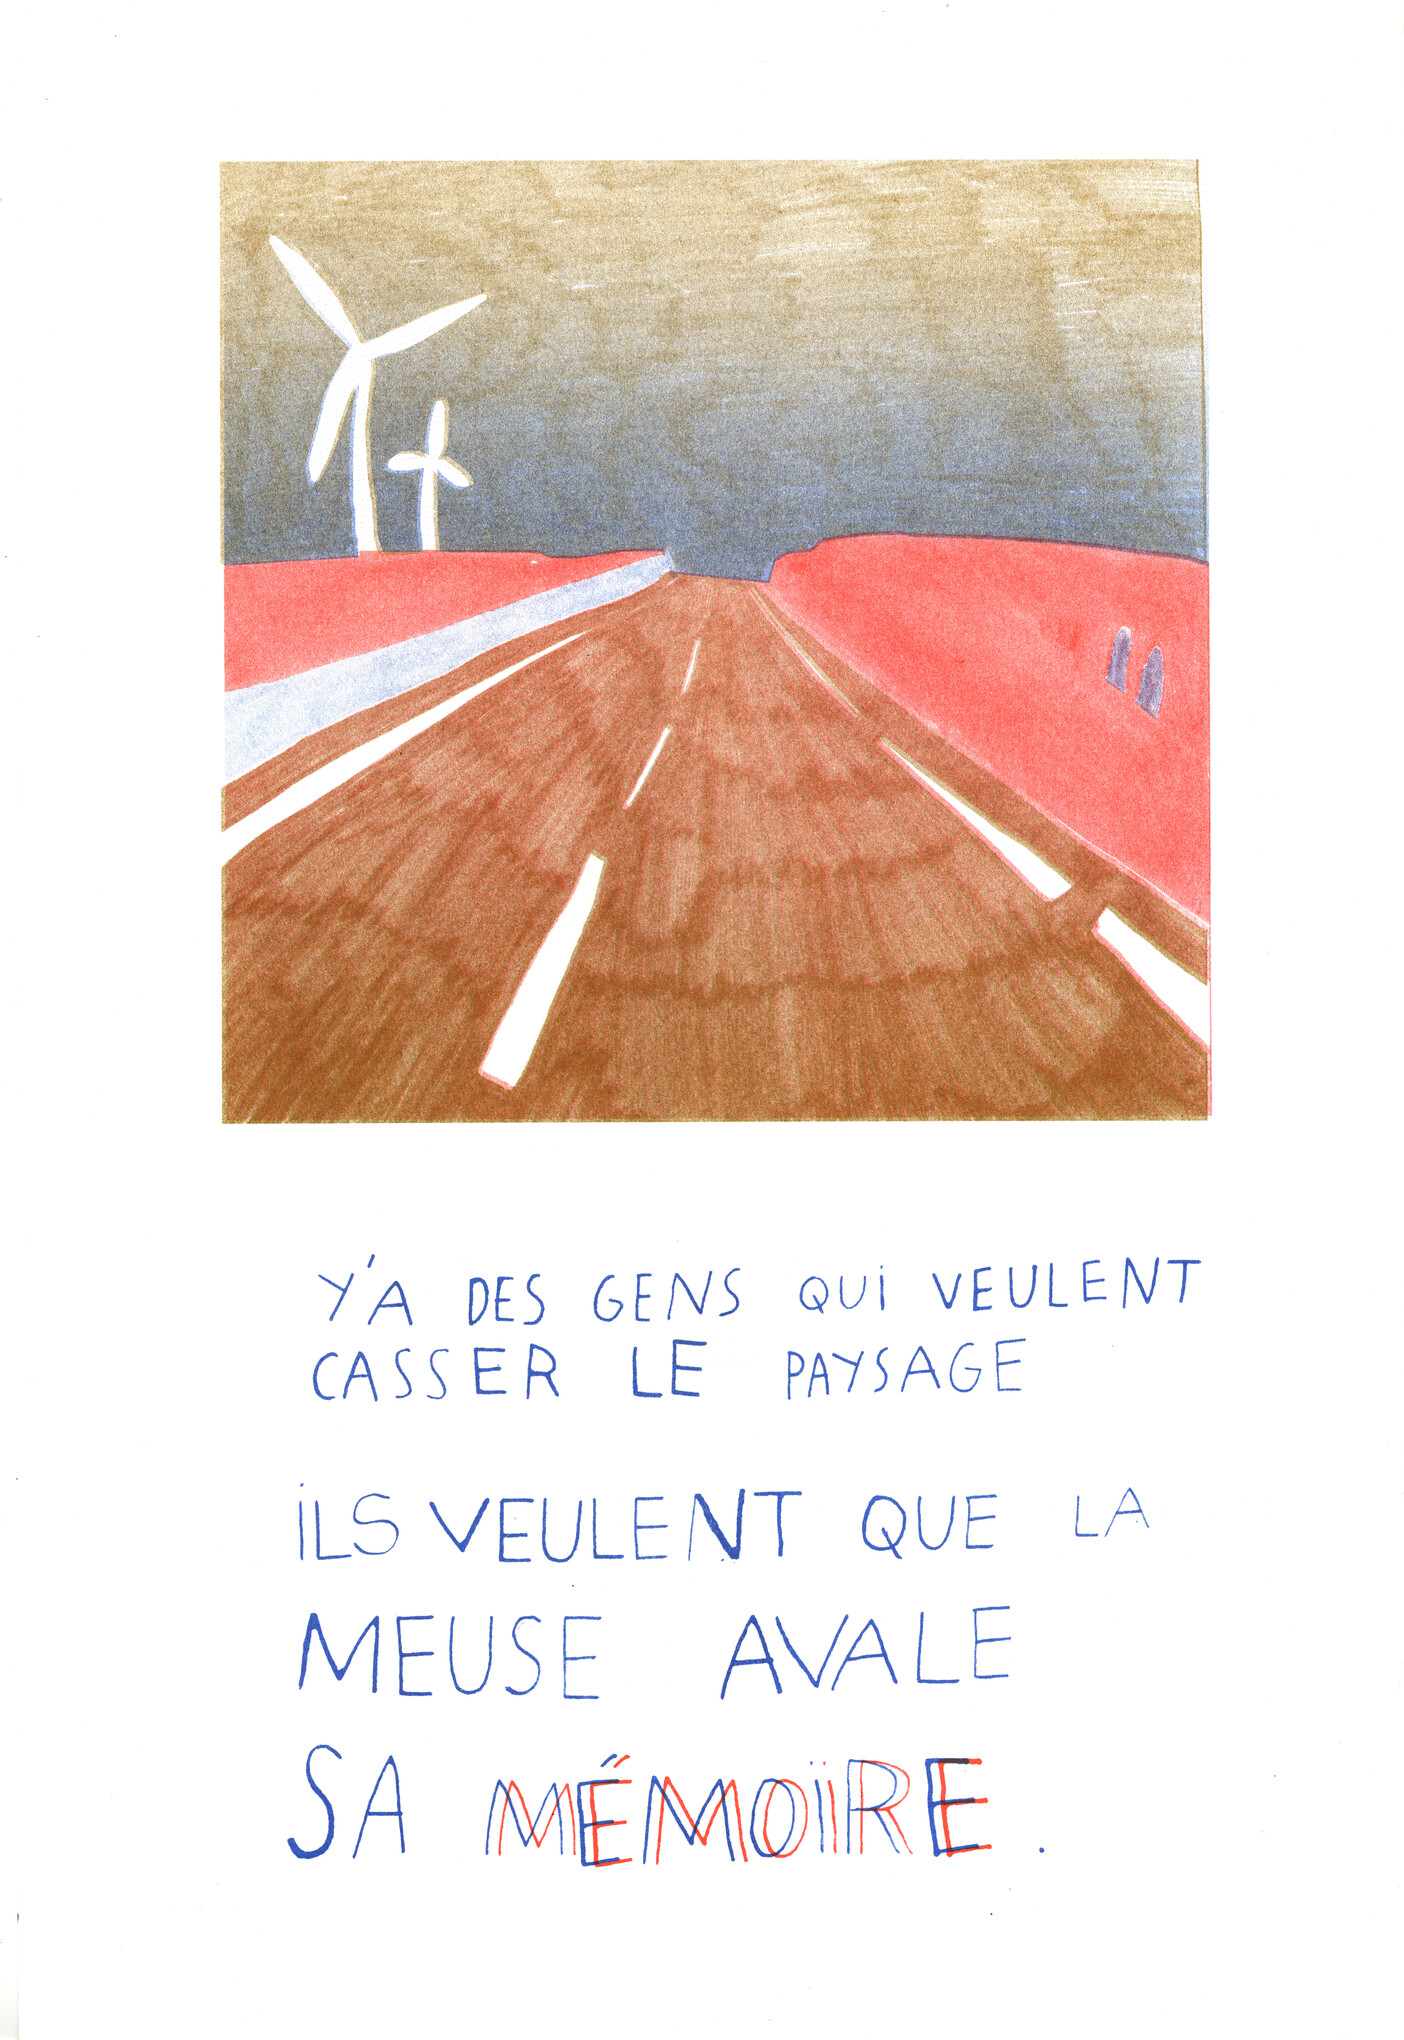 Y'A DES GENS QUi VEULENT
CASSER LE PAYSAGE
iLS VEULENT QUE LA
MEUSE AVALE
SA MÉMOiRE.